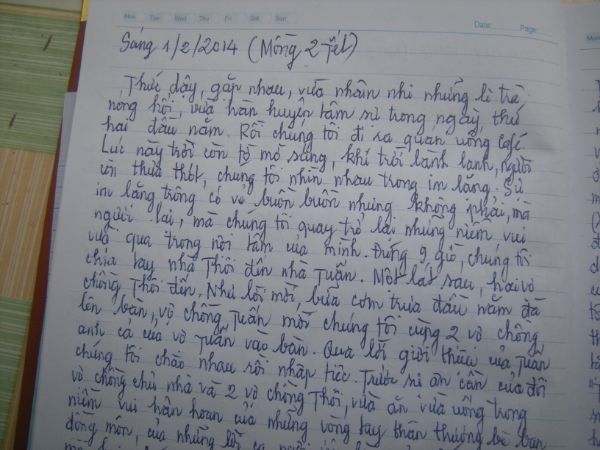 Mon Tue Wed Thu Fri Sat Sun
Date: Page:
Sáng 1/2/2014 (Mồng 2 Tết)
Thức dậy, gặp nhau, vừa nhâm nhi những li trà
nóng hổi, vừa hàn huyên tâm sự trong ngày, thứ
hai đầu năm. Rồi chúng tôi đi ra quán uống café.
Lúc này trời còn tờ mờ sáng, khí trời lành lạnh, người
còn thưa thớt, chúng tôi nhìn nhau trong im lặng. Sự
im lặng trông có vẻ buồn buồn nhưng không phải, mà
ngược lại, mà chúng tôi quay trở lại những niềm vui
vừa qua trong nội tâm của mình. Đúng 9 giờ, chúng tôi
chia tay nhà Thôi đến nhà Tuấn. Một lát sau, hai vợ
chồng Thôi đến. Như lời mời, bữa cơm trưa đầu năm đã
lên bàn, vợ chồng Tuấn mời chúng tôi cùng 2 vợ chồng
anh cả của vợ Tuấn vào bàn. Qua lời giới thiệu của Tuấn
chúng tôi chào nhau rồi nhập tiệc. Trước sự ân cần của đôi
vợ chồng chủ nhà và 2 vợ chồng Thôi, vừa ăn vừa uống trong
niềm vui hân hoan của những vòng tay thân thương bè bạn
đồng môn, của những lời ca